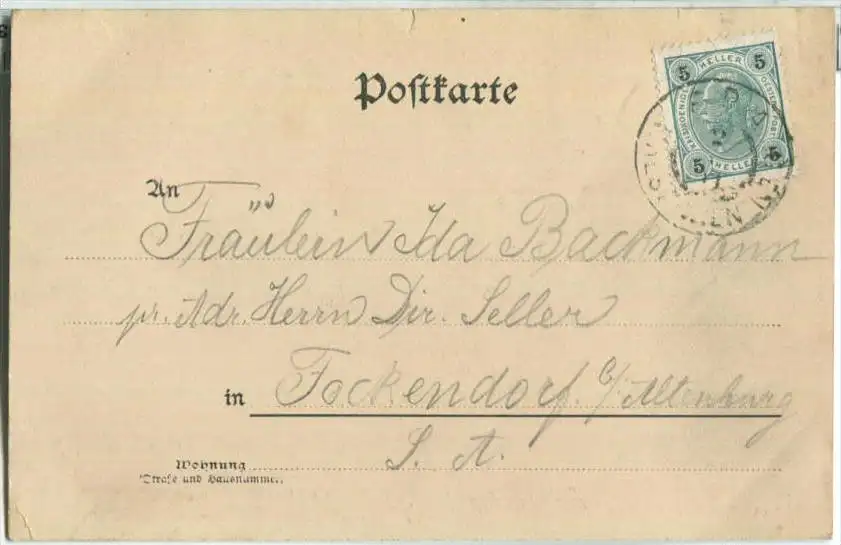 Postkarte
5 HELLER 5
KAISERKOENIGL OESTERR POST
5 HELLER 5
WIEN
An
Fräulein Ida Backmann
pr. Adr. Herrn Dir. Seller
in Fockendorf b/Altenburg
S. A.
Wohnung
(Straße und Hausnummer)